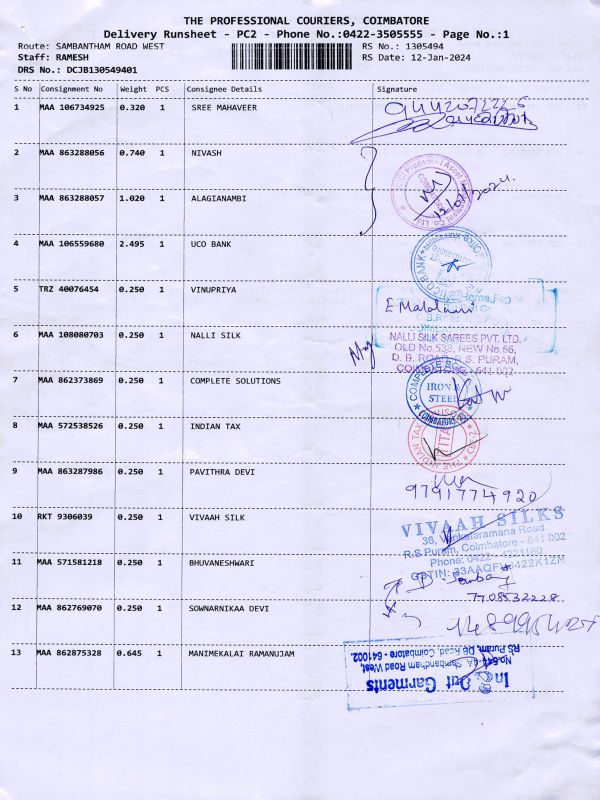 THE PROFESSIONAL COURIERS, COIMBATORE
Delivery Runsheet - PC2 - Phone No.:0422-3505555 - Page No.:1
Route: SAMBANTHAM ROAD WEST RS No.: 1305494
Staff: RAMESH RS Date: 12-Jan-2024
DRS No.: DCJB130549401
S No Consignment No Weight PCS Consignee Details Signature
1 MAA 106734925 0.320 1 SREE MAHAVEER
2 MAA 863288056 0.740 1 NIVASH
3 MAA 863288057 1.020 1 ALAGIANAMBI
12/01/2024
4 MAA 106559680 2.495 1 UCO BANK
UCO BANK
5 TRZ 40076454 0.250 1 VINUPRIYA
6 MAA 108080703 0.250 1 NALLI SILK
NALLI SILK SAREES PVT. LTD.
OLD No.538, NEW No.66,
D. B. ROAD, R.S. PURAM,
COIMBATORE - 641 002
7 MAA 862373869 0.250 1 COMPLETE SOLUTIONS
IRON &
STEEL
8 MAA 572538526 0.250 1 INDIAN TAX
THE INDIAN TAX
9 MAA 863287986 0.250 1 PAVITHRA DEVI
9791774920
10 RKT 9306039 0.250 1 VIVAAH SILK
VIVAAH SILKS
36, Venkataramana Road
R.S Puram, Coimbatore - 641 002
11 MAA 571581218 0.250 1 BHUVANESHWARI
7708532228
12 MAA 862769070 0.250 1 SOWNARNIKAA DEVI
13 MAA 862875328 0.645 1 MANIMEKALAI RAMANUJAM
In & Out Garments
Sambandham Road West,
RS Puram, DB Road, Coimbatore - 641002.